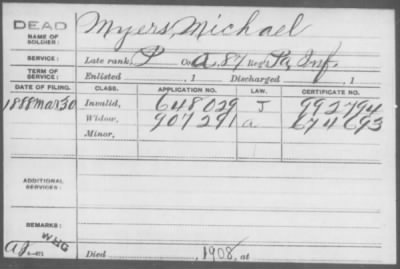 DEAD
NAME OF SOLDIER: Myers, Michael
SERVICE: Late rank, P Co. A, 87 Reg't Pa Inf.
TERM OF SERVICE: Enlisted , 1 Discharged , 1
DATE OF FILING. CLASS. APPLICATION NO. LAW. CERTIFICATE NO.
1888 Mar 30 Invalid, 648029 J 992794
Widow, 907291 a 674693
Minor,
ADDITIONAL SERVICES:
REMARKS: WHG
Died , 1908, at